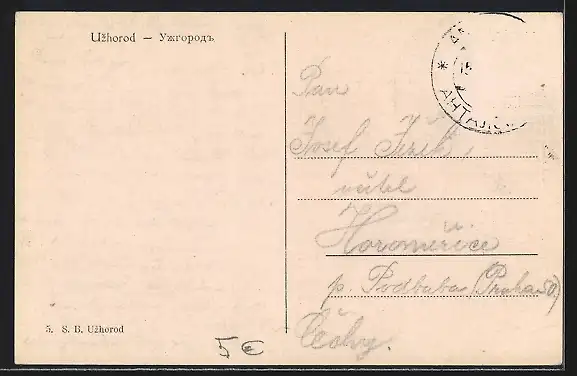 Užhorod — Ужгородъ
Pan
Josef Jizik,
učitel
Horoměřice
p. Podbaba (Praha 50)
Čechy.
3. S. B. Užhorod
5€